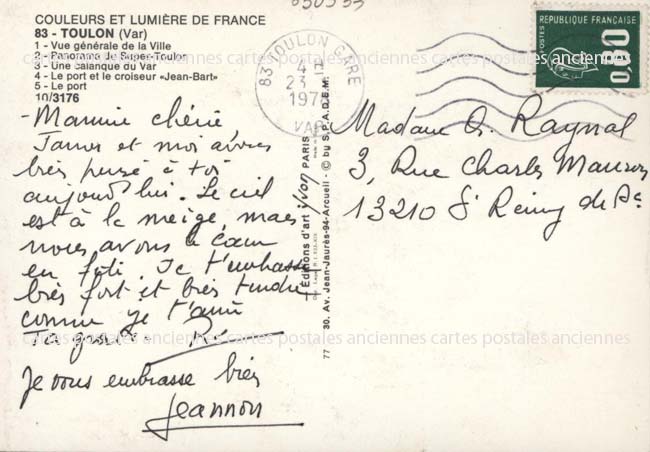 COULEURS ET LUMIÈRE DE FRANCE
83 - TOULON (Var)
1 - Vue générale de la Ville
2 - Panorama de Super-Toulon
3 - Une calanque du Var
4 - Le port et le croiseur «Jean-Bart»
5 - Le port
10/3176
- Mamie chérie
et moi avons
très pensé à toi
aujourd'hui. Le ciel
est à la neige, mais
nous avons le cœur
en fête. Je t'embrasse
très fort et très tendre
comme je t'aime
Ta
Je vous embrasse bien
Jeannou
Editions d'art Yvon PARIS
30, Av. Jean-Jaurès-94-Arcueil - © by S.P.A.D.E.M.
77
83 TOULON GARE
23
VAR
REPUBLIQUE FRANÇAISE
POSTES
0,80
Madame A. Raynal
3, Rue Charles
13210 St Remy de Pce
cartes postales anciennes cartes postales anciennes cartes postales anciennes